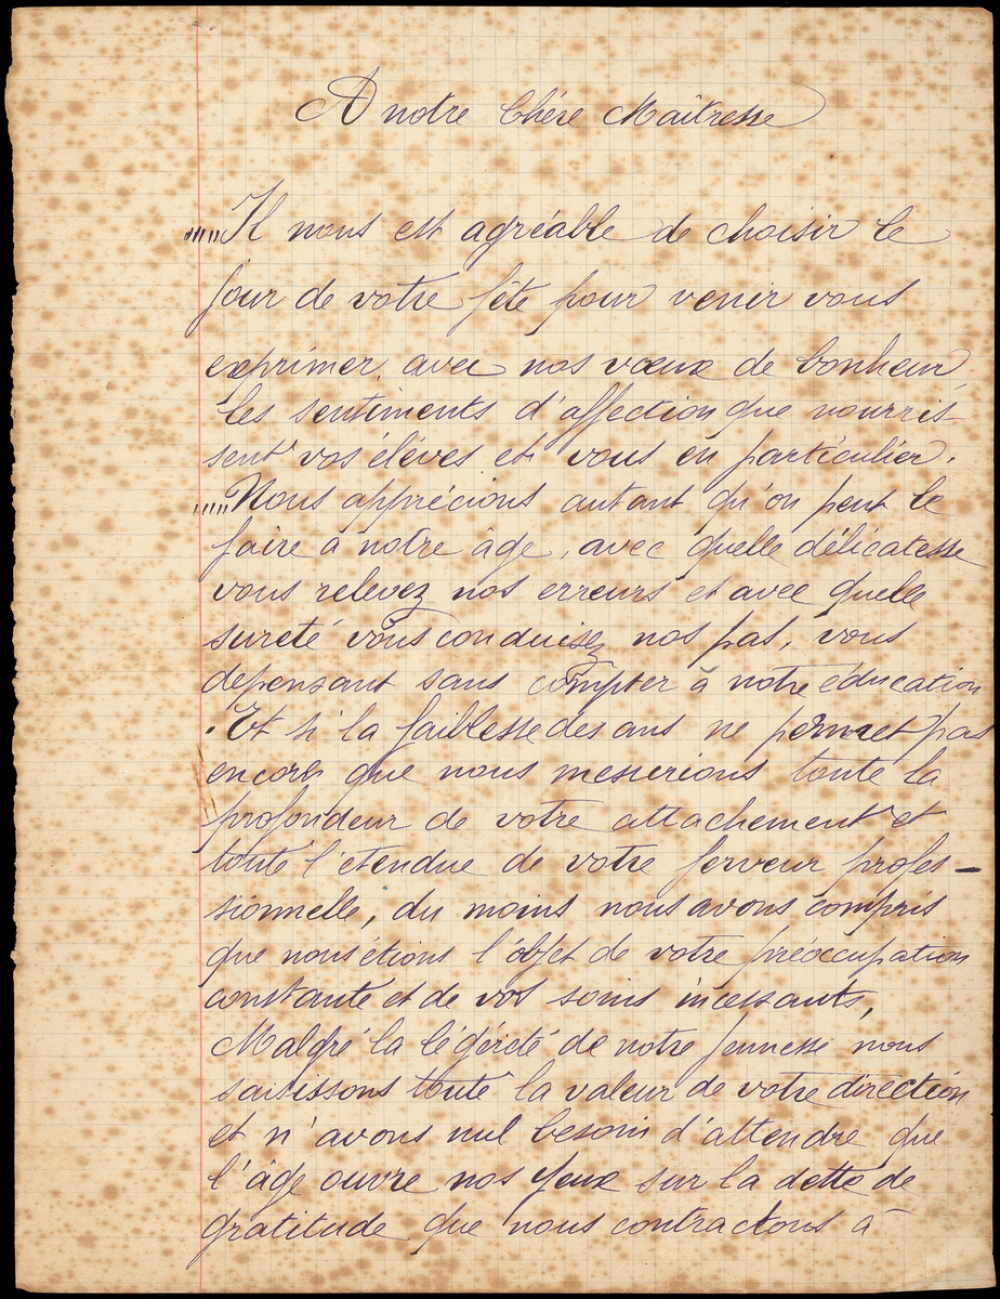 A notre Chère Maîtresse
""Il nous est agréable de choisir le
jour de votre fête pour venir vous
exprimer, avec nos vœux de bonheur
les sentiments d'affection que nourris-
sent vos élèves et vous en particulier.
""Nous apprécions autant qu'on peut le
faire à notre âge, avec quelle délicatesse
vous relevez nos erreurs et avec quelle
sureté vous conduisez nos pas, vous
dépensant sans compter à notre éducation
. Et si la faiblesse des ans ne permet pas
encore que nous mesurions toute la
profondeur de votre attachement et
toute l'étendue de votre ferveur profes-
sionnelle, du moins nous avons compris
que nous étions l'objet de votre préoccupation
constante et de vos soins incessants,
Malgré la légèreté de notre jeunesse nous
saisissons toute la valeur de votre direction
et n'avons nul besoin d'attendre que
l'âge ouvre nos yeux sur la dette de
gratitude que nous contractons à